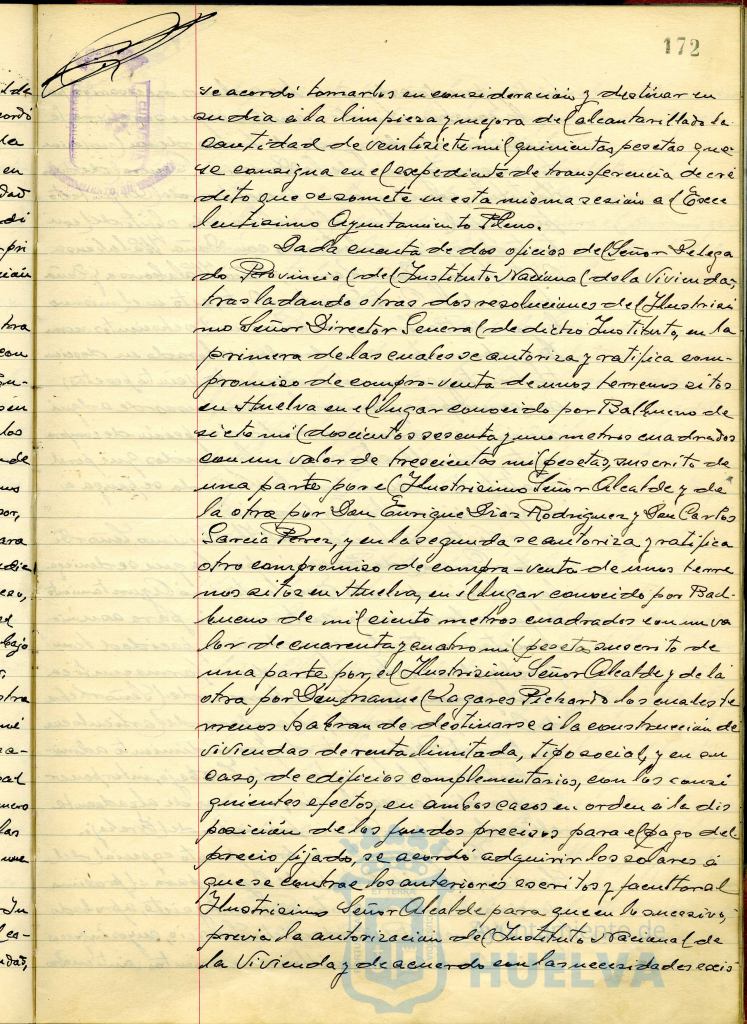 172
se acordó tomarlos en consideración y destinar en
su dia a la limpieza y mejora del alcantarillado la
cantidad de veintisiete mil quinientas pesetas que
se consigna en el expediente de transferencia de cré
dito que se somete en esta misma sesión al Exce
lentisimo Ayuntamiento Pleno.
Dada cuenta de dos oficios del Señor Delega
do Provincial del Instituto Nacional de la Vivienda,
trasladando otras dos resoluciones del Ilustrisi
mo Señor Director General de dicho Instituto, en la
primera de las cuales se autoriza y ratifica com-
promiso de compra-venta de unos terrenos sitos
en Huelva en el lugar conocido por Balbueno de
siete mil doscientos sesenta y uno metros cuadrados
con un valor de trescientas mil pesetas, suscrito de
una parte por el Ilustrisimo Señor Alcalde y de
la otra por Don Enrique Diaz Rodriguez y Don Carlos
Garcia Perez, y en la segunda se autoriza y ratifica
otro compromiso de compra-venta de unos terre
nos sitos en Huelva, en el lugar conocido por Bal-
bueno de mil ciento metros cuadrados con un va
lor de cuarenta y cuatro mil pesetas suscrito de
una parte por el Ilustrisimo Señor Alcalde y de la
otra por Don Manuel Lagares Pichardo los cuales te
rrenos habran de destinarse a la construcción de
viviendas de renta limitada, tipo social, y en su
caso, de edificios complementarios, con los consi
guientes efectos, en ambos casos en orden a la dis
posición de los fondos precisos para el pago del
precio fijado, se acordó adquirir los solares a
que se contrae los anteriores escritos y facultar al
Ilustrisimo Señor Alcalde para que en lo sucesivo,
previa la autorización del Instituto Nacional de
la Vivienda y de acuerdo con las necesidades exis
Ayuntamiento de
HUELVA